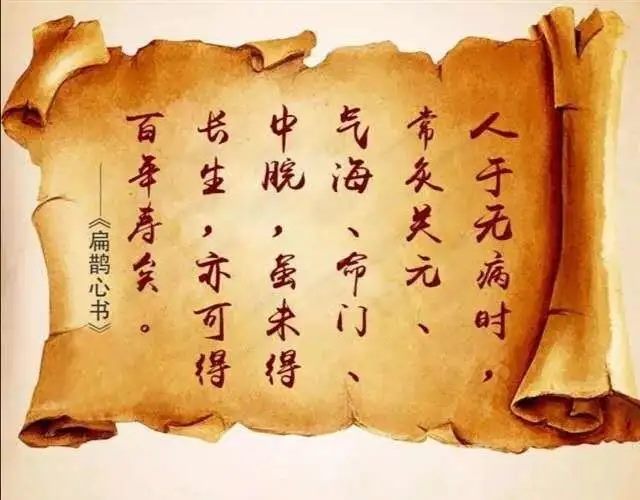 人于无病时，
常灸关元、
气海、命门、
中脘，虽未得
长生，亦可得
百年寿矣。
——《扁鹊心书》